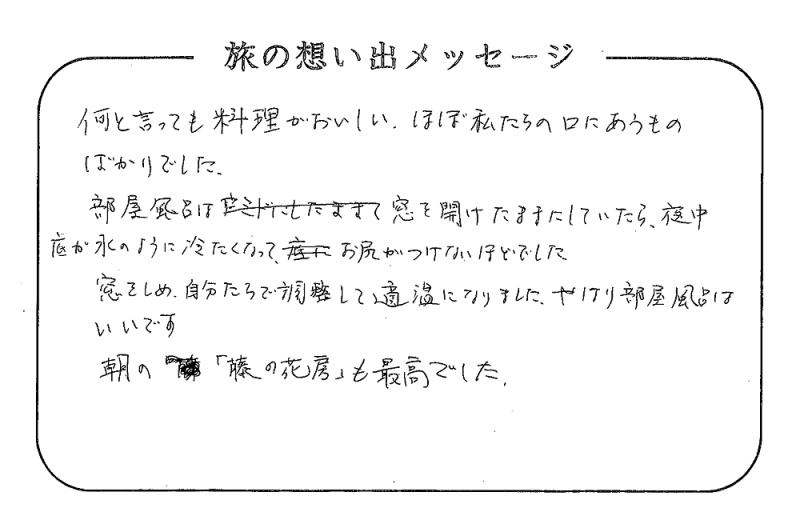 旅の想い出メッセージ
何と言っても料理がおいしい．ほぼ私たちの口にあうもの
ばかりでした．
部屋風呂は窓を開けたままにしていたら、夜中
底が氷のように冷たくなって、お尻がつけないほどでした
窓をしめ、自分たちで調整して適温になりました．やはり部屋風呂は
いいです
朝の「藤の花房」も最高でした．